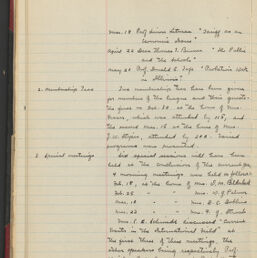 Mar. 18 Prof Simon Litman "Tariff as an
Economic Issue"
April 22 Dean Thomas E. Benner "The Public
and the Schools"
May 21 Prof. Donald R. Taft "Probation Work
in Illinois"
2. Membership Teas Two membership teas have been given
for members of the league and their guests.
the first on Feb. 20, at the home of Mrs.
, which was attended by 115, and
the second Mar. 15 at the home of Mrs.
J. W. , attended by .
programs were presented.
3. Special meetings Six special sessions will have been
held at the conclusion of the current year
4 morning meetings were held as follows:
Feb. 18, at the home of Mrs. F. W.
Feb. 25 " " Mrs. W. G. Palmer
Mar. 11 " " Mrs. E. C. Robbins
Mar. 23 " " Mrs. F. G.
Mrs. C. E. Schmidt discussed "Current
in the International Field" at
the first three of these meetings, the
other speakers being respectively Prof.